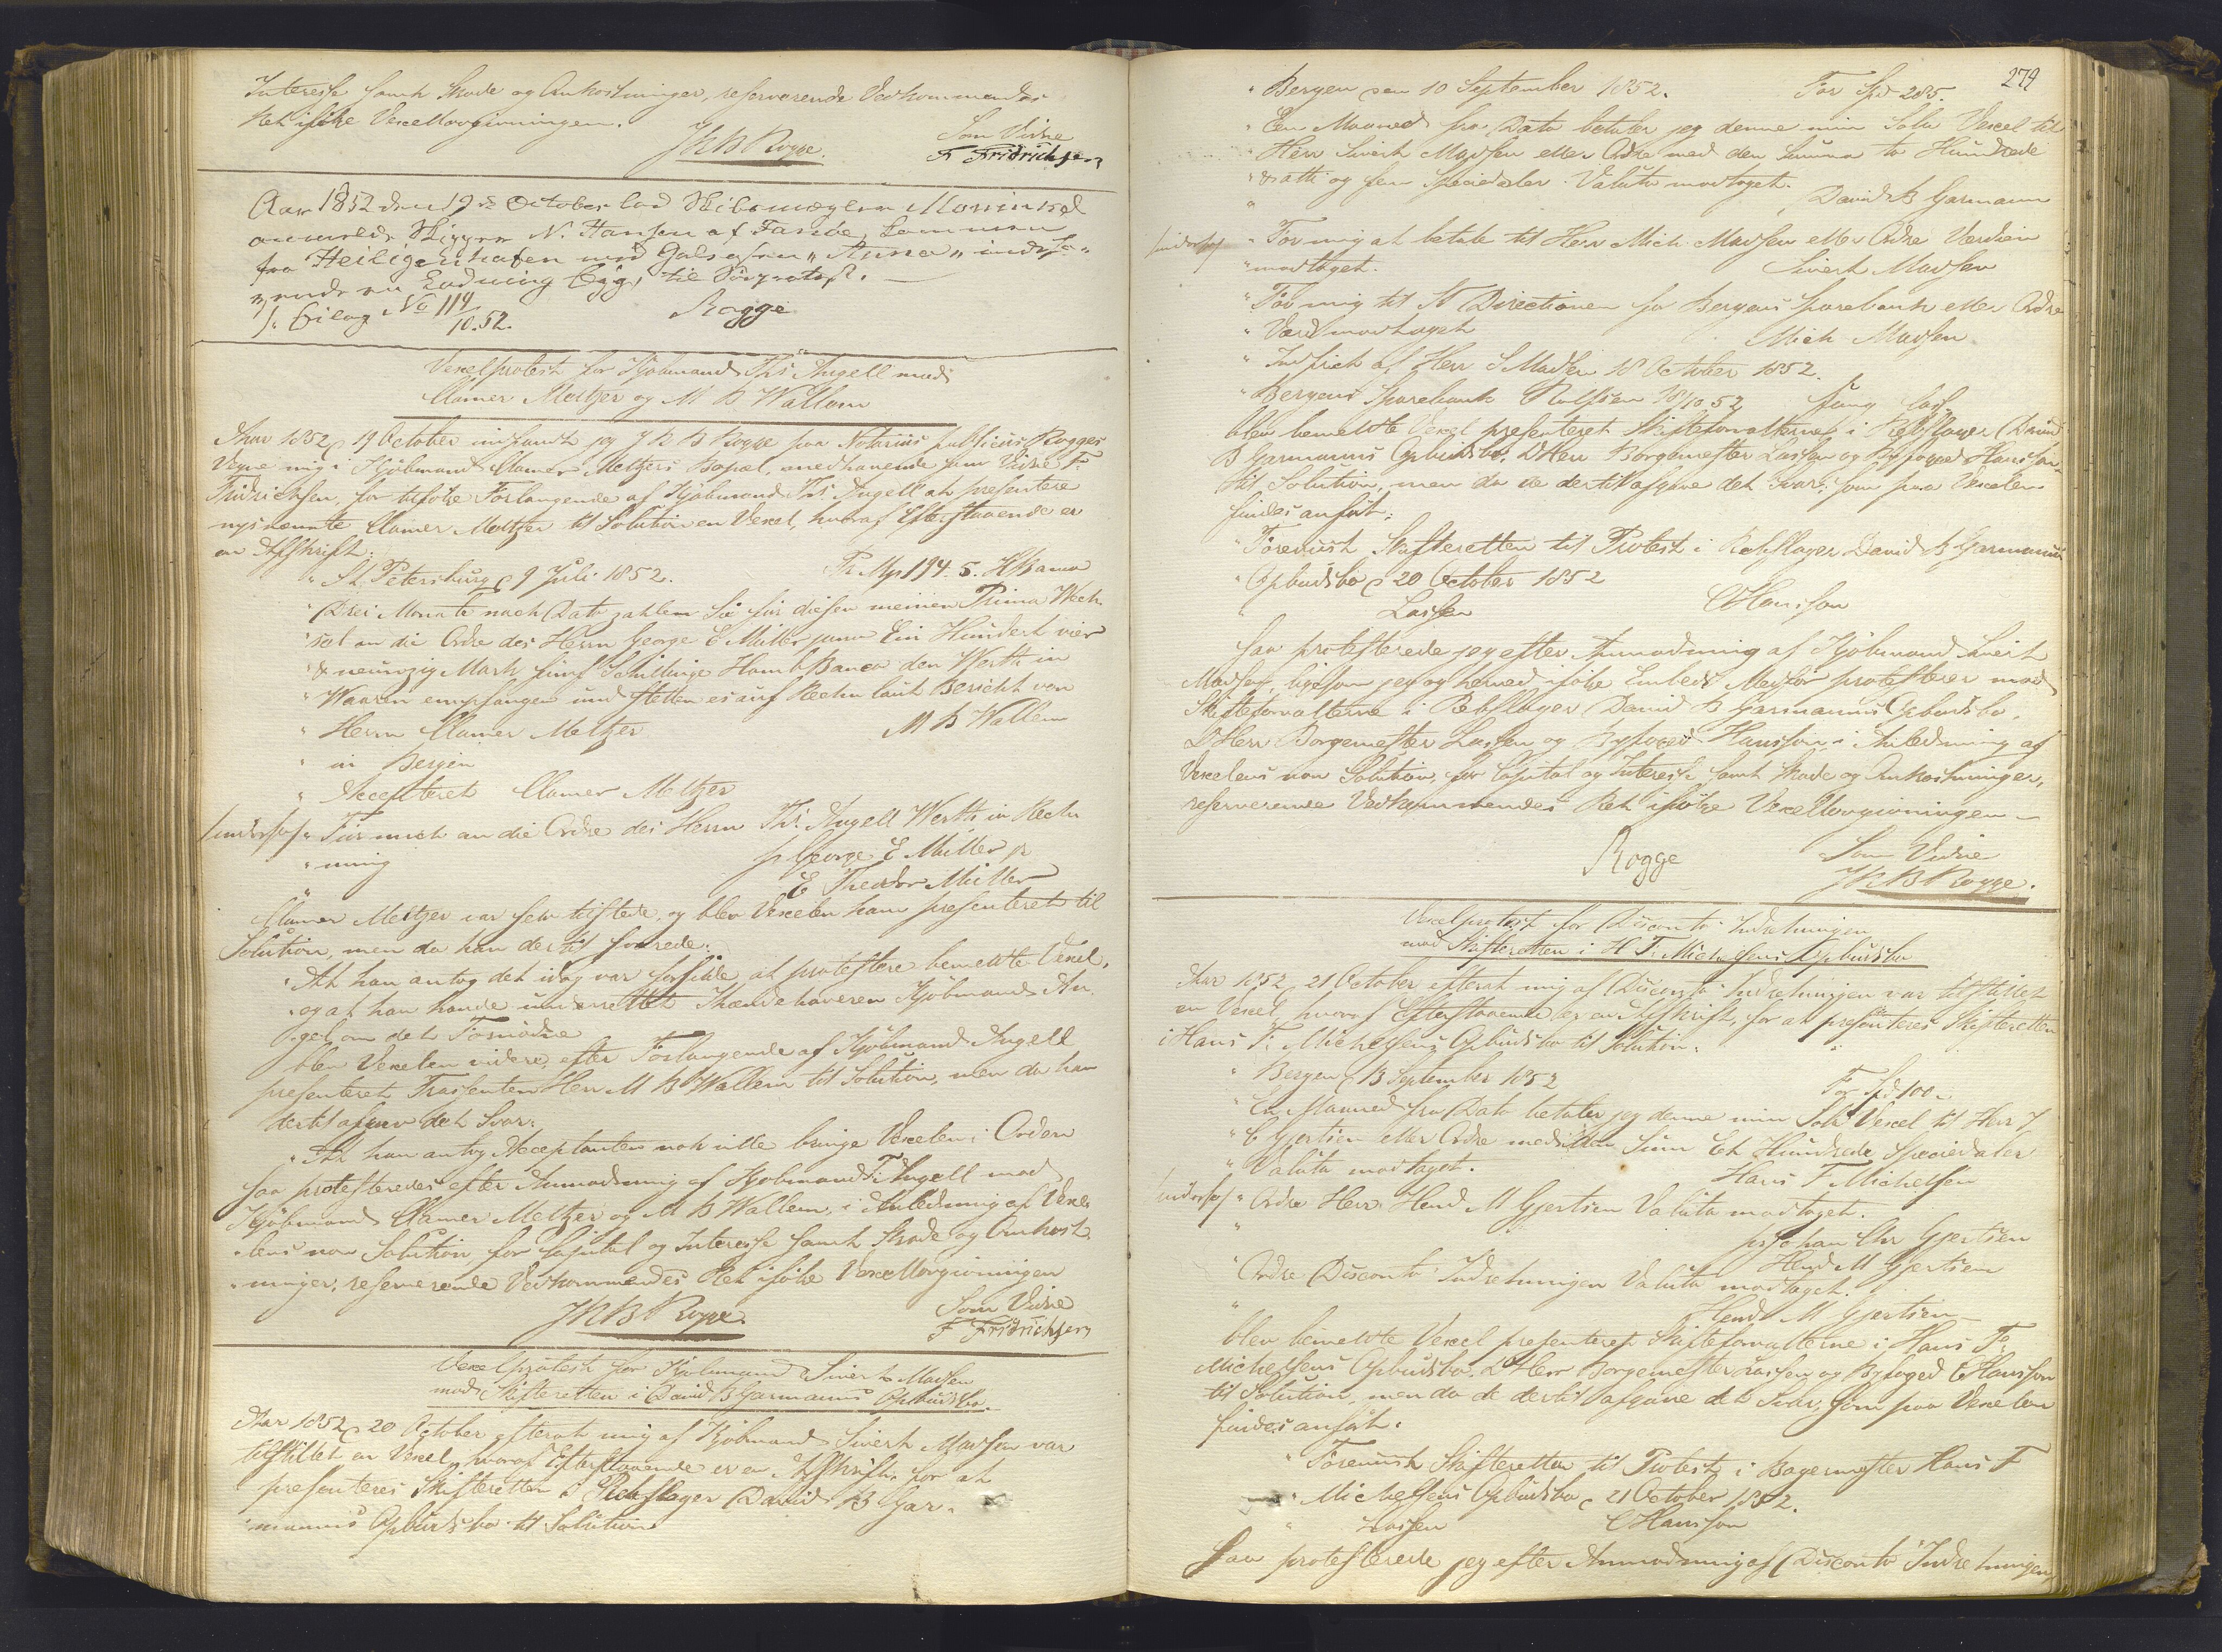 Interesse samt Skade og Omkostninger, reserverende Vedkommendes
Ret ifølge Vexellovgivningen.
JKB Rogge.
Som Vidne
F Fridrichsen
Aar 1852 den 19de October lod Skibsmægler Mowinkel
anmelde Skipper N. Hansen af Farsde, kommen
fra Heiligenhafen med Galeasen "Anna" indeha-
vende en Ladning Byg, til Søeprotest.
J. bilag No 114
10.52.
Rogge
Vexelprotest for Kjøbmand Ths Angell mod
Clamer Meltzer og M B Wallem
Aar 1852 19 October indfandt jeg J K B Rogge paa Notarius publicus Rogges
Vegne mig i Kjøbmand Clamer Meltzers Bopæl, medhavende som Vidne F
Fridrichsen, for ifølge Forlangende af Kjøbmand Ths Angell at presentere
nysnævnte Clamer Meltzer til Solution en Vexel, hvoraf Efterstaaende er
en Afskrift:
" St. Petersburg 9 Juli 1852.
Pr Mk 194. 5. H Banco
" Drei Monate nach Dato zahlen Sie für diesen meinen Prima Wech
" sel an die Ordre des Herrn George E Müller junr Ein Hundert vier
" & neunzig Mark fünf Schillinge Hamb Banco den Werth in
" Waaren empfangen und stellen es auf Rechn laut Bericht von
" Herrn Clamer Meltzer
M B Wallem
" in Bergen
" Accepteret Clamer Meltzer
" Für mich an die Ordre des Herrn Ths Angell Werth in Rech
" nung
p George E Müller jr
E Theodor Müller
Clamer Meltzer var selv tilstede, og blev Vexelen ham presenteret til
Solution, men da han dertil svarede:
" At han antog det idag var forsilde at protestere bemeldte Vexel,
" og at han havde underrettet Ihændehaveren Kjøbmand An
" gel om det Fornødne
blev Vexelen videre, efter Forlangende af Kjøbmand Angell
presenteret Trassenten Herr M B Wallem til Solution, men da han
dertil afgav det Svar:
" At han antog Acceptanten nok ville bringe Vexelen i Orden
saa protesteredes efter Anmodning af Kjøbmand T. Angell mod
Kjøbmand Clamer Meltzer og M B Wallem, i Anledning af Vexe-
lens non Solution, for Capital og Interesse samt Skade og Omkost
ninger, reserverende Vedkommendes Ret ifølge Vexellovgivningen
JKB Rogge
Som Vidne
F Fridrichsen
Vexelprotest for Kjøbmand Sivert Madsen
mod Skifteretten i David B Garmanns Opbudsbo.
Aar 1852 20 October efterat mig af Kjøbmand Sivert Madsen var
tilstillet en Vexel, hvoraf Efterstaaende er en Afskrift, for at
presenteres Skifteretten i Rebslager David B Gar-
manns Opbudsbo til Solution
279
" Bergen den 10 September 1852.
For Spd 285.
" Een Maaned fra Dato betaler jeg denne min Sola Vexel til
" Herr Sivert Madsen eller Ordre med den Summa to Hundrede
" & otti og fem Speciedaler. Valuta modtaget.
David B Garmann
" For mig at betale til Herr Mich. Madsen eller Ordre Værdien
" modtaget.
Sivert Madsen
" For mig til Directionen for Bergens Sparebank eller Ordre
" Værd modtaget
Mich Madsen
" Indfriet af Herr S Madsen 18 October 1852.
" Bergens Sparebank 18/10 52
blev bemeldte Vexel presenteret Skifteforvalterne i Rebslager David
B Garmanns Opbudsbo, DHerr Borgemester Lassen og Byfoged Hansson
til Solution, men da de dertil afgave det Svar, som paa Vexelen
findes anført:
" Foreviist Skifteretten til Protest i Rebslager David B Garmanns
" Opbudsbo 20 October 1852
Lassen
C Hansson
saa protesterede jeg efter Anmodning af Kjøbmand Sivert
Madsen, ligesom jeg og hermed ifølge Embeds Medfør protesterer mod
Skifteforvalterne i Rebslager David B Garmanns Opbudsbo,
DHerr Borgemester Lassen og Byfoged Hansson, i Anledning af
Vexelens non Solution, for Capital og Interesse samt Skade og Omkostninger,
reserverende Vedkommendes Ret ifølge Vexellovgivningen
Rogge
Som Vidne
JKB Rogge.
Vexelprotest for Disconto Indretningen
mod Skifteretten i H F. Michelsens Opbudsbo
Aar 1852, 21 October efterat mig af Disconto Indretningen var tilstillet
en Vexel, hvoraf Efterstaaende er en Afskrift, for at presenteres Skifteretten
i Hans F. Michelsens Opbudsbo til Solution:
" Bergen 13 September 1852
For Spd 100.
" En Maaned fra Dato betaler jeg denne min Sola Vexel til Herr J
" C Gjertsen eller Ordre med den Sum Et Hundrede Speciedaler
" Valuta modtaget.
Hans F Michelsen
" Ordre Herr Hend M Gjertsen Valuta modtaget.
Johan Chr Gjertsen
Hend M Gjertsen
" Ordre Disconto Indretningen Valuta modtaget.
Hend M Gjertsen
blev bemeldte Vexel presenteret Skifteforvalterne i Hans F.
Michelsens Opbudsbo, DHerr Borgemester Lassen og Byfoged C Hansson
til Solution, men da de dertil afgave det Svar, som paa Vexelen
findes anført:
" Foreviist Skifteretten til Protest i Bagermester Hans F
" Michelsens Opbudsbo 21 October 1852.
Lassen
C Hansson
saa protesterede jeg efter Anmodning af Disconto Indretningen,